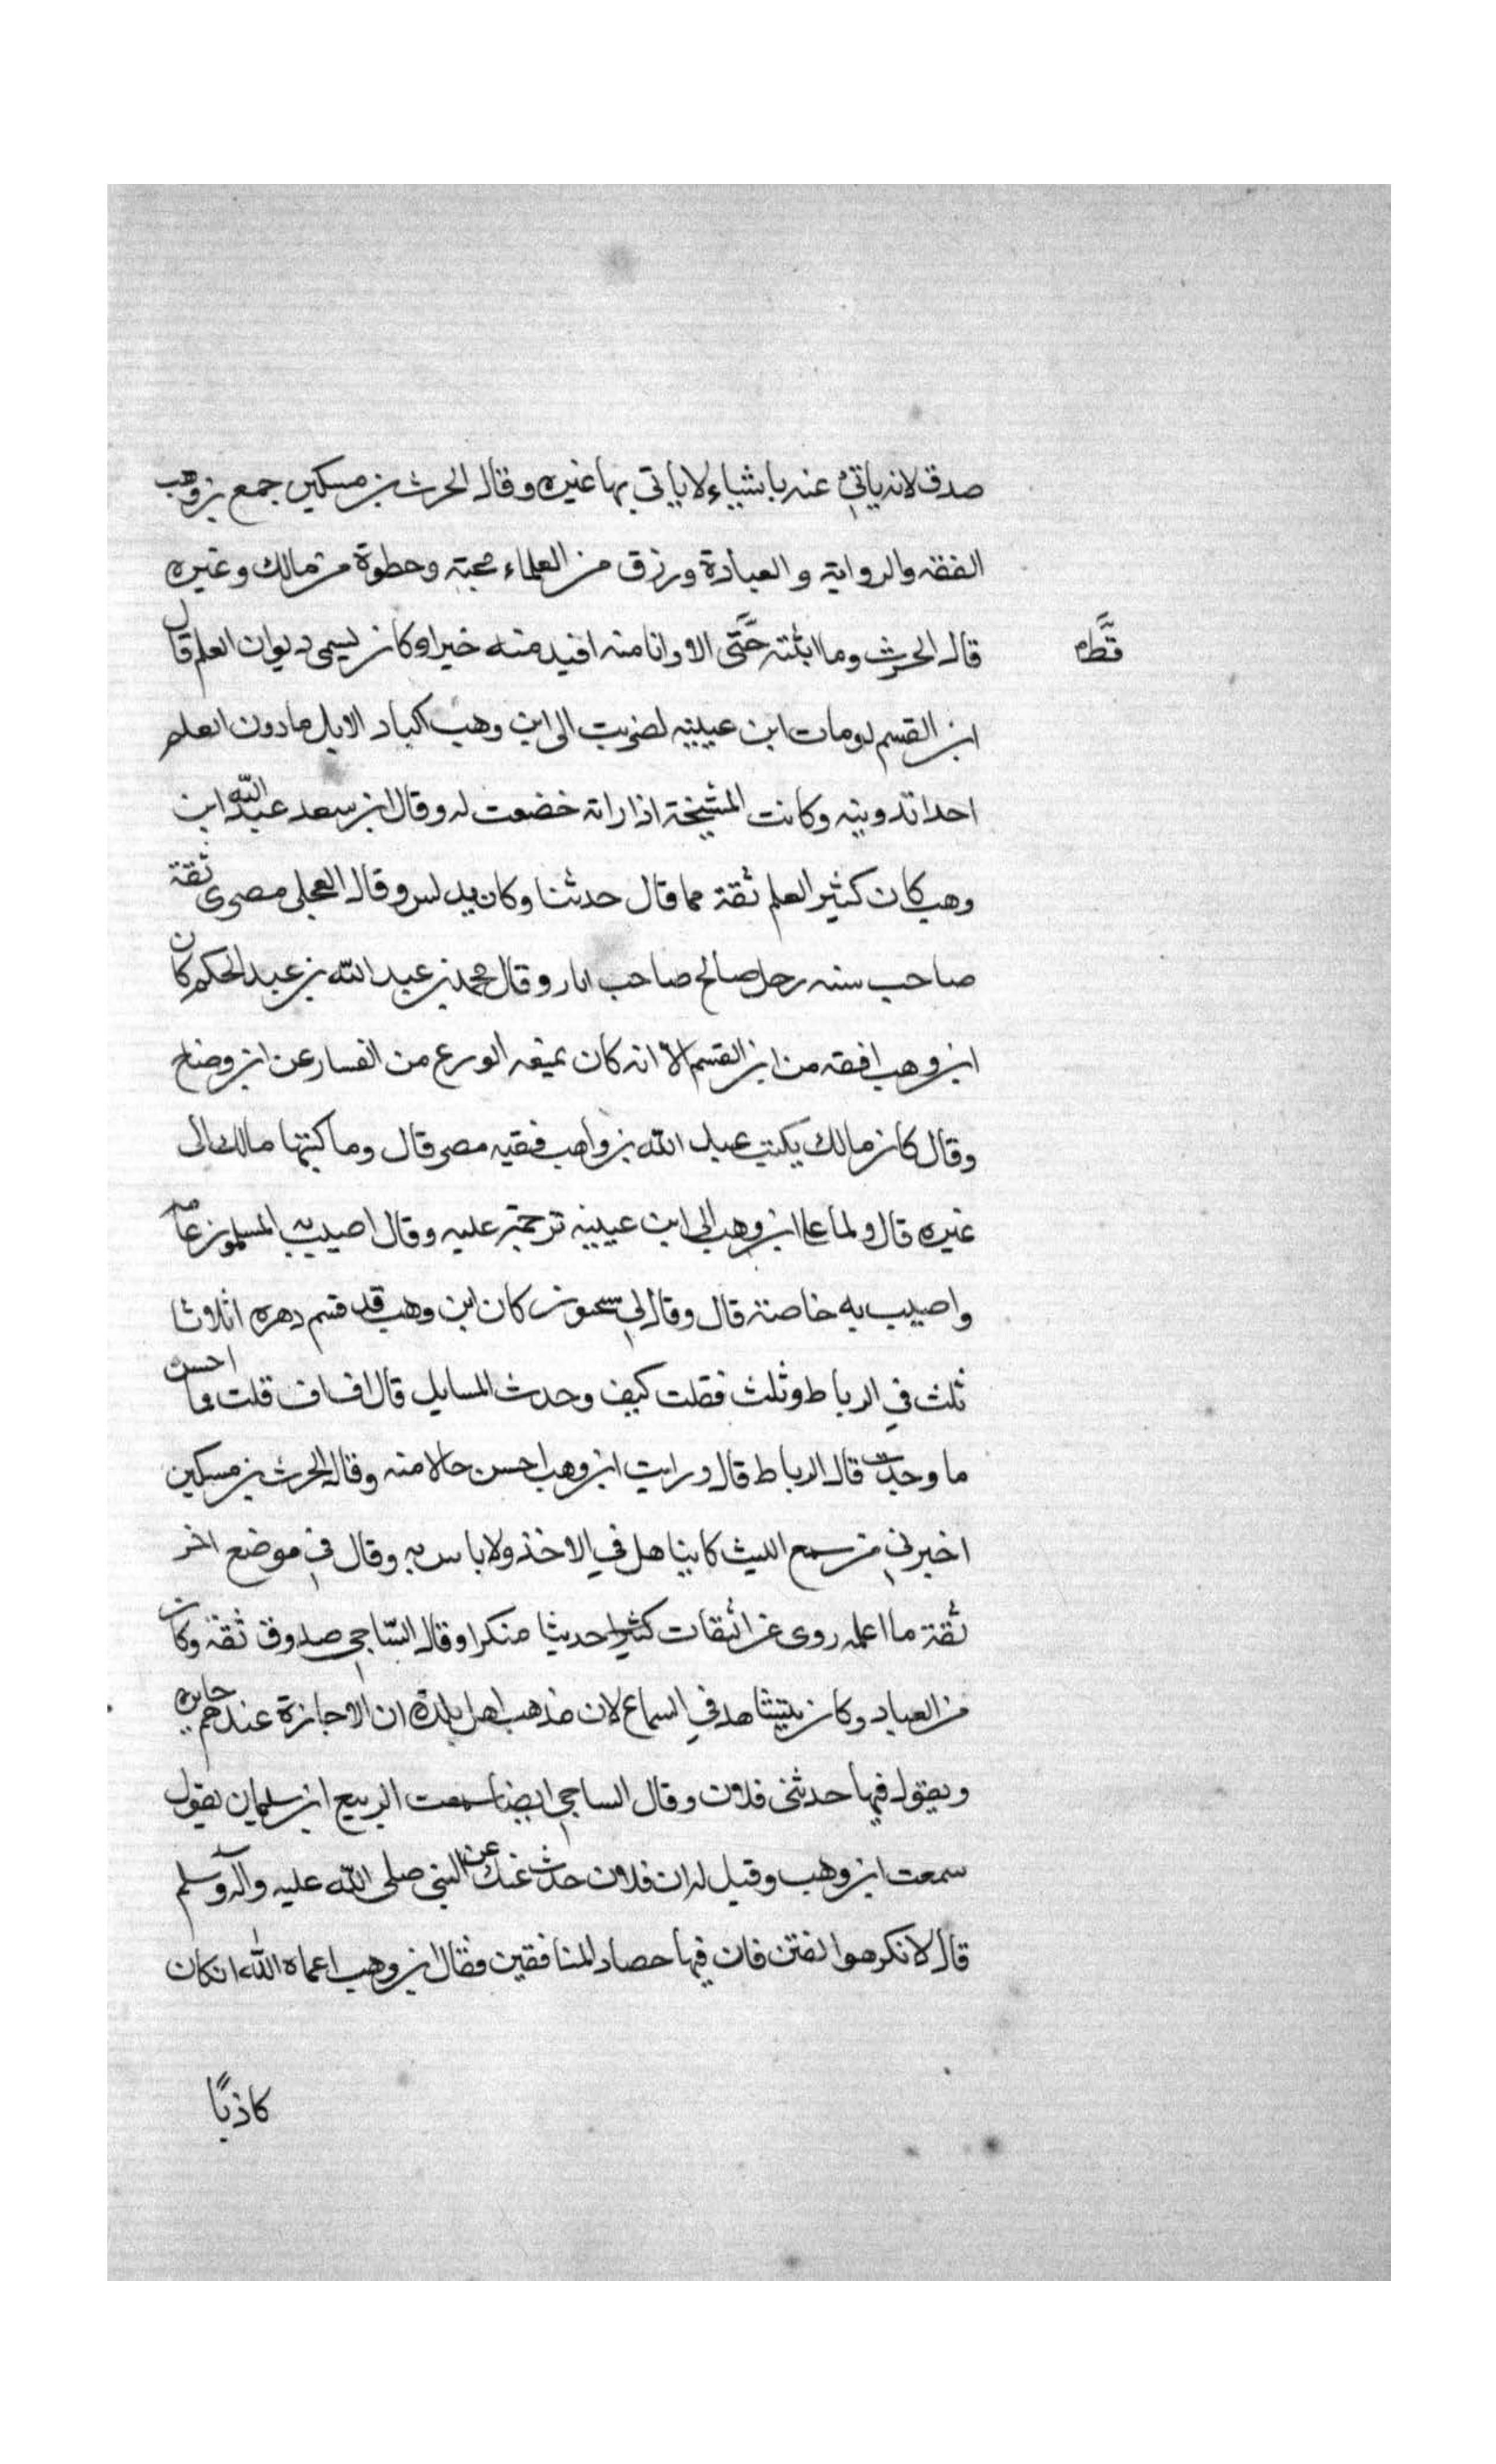 صدق لانه ياتي عنه باشياء لا ياتي بها غيره وقال الحرث بن مسكين جمع بن وهب
الفقه والرواية والعبادة ورزق من العلماء محبة وحطوة من مالك وغيره
قال الحرث وما اتيته حتى الا وانا منه افيد منه خيرا وكان يسمى ديوان العلم قال
قط
ابن القسم لو مات ابن عيينه لضربت الى ابن وهب اكباد الابل ما دون العلم
احد تدوينه وكانت المشيخة اذا راته خضعت له وقال ابن سعد عبد الله ابن
وهب كان كثير العلم ثقة مما قال حدثنا وكان يدلس وقال العجلى مصرى ثقة
صاحب سنه رجل صالح صاحب اثار وقال محمد بن عبد الله بن عبد الحكم كان
ابن وهب افقه من ابن القسم الا انه كان يمنعه الورع من الفسار عن ابن وضاح
وقال كان مالك يكتب عبد الله بن واهب فقيه مصر قال وما كتبها مالك الى
غيره قال ولما عا ابن وهب الى ابن عيينه ترحمة عليه وقال اصيب به المسلمون عامه
واصيب به خاصة قال وقال لي سحنون كان ابن وهب قد قسم دهره اثلاثا
ثلث في الرباط وثلث فقلت كيف وحدث المسايل قال اف اف قلت وما احسن
ما وجدت قال الرباط قال ورايت ابن وهب احسن حالا منه وقال الحرث بن مسكين
اخبرني من سمع الليث كا يتناهل في الاخذ ولا باس به وقال في موضع اخر
ثقة ما اعلمه روى عن اثقات كثيرا حديثا منكرا وقال السّاجي صدوق ثقة وكان
من العباد وكان يتشاهد في السماع لان مذهب اهل بلده ان الاجازة عندهم جايزه
ويقول فيها حدثنى فلان وقال الساجي ايضا سمعت الربيع ابن سليمان يقول
سمعت ابن وهب وقيل له ان فلان حدث عنك عن النبي صلى الله عليه وآله وسلم
قال لا نكرهوا الفتن فان فيها حصاد المنافقين فقال ابن وهب اعماه الله ان كان
كاذبًا